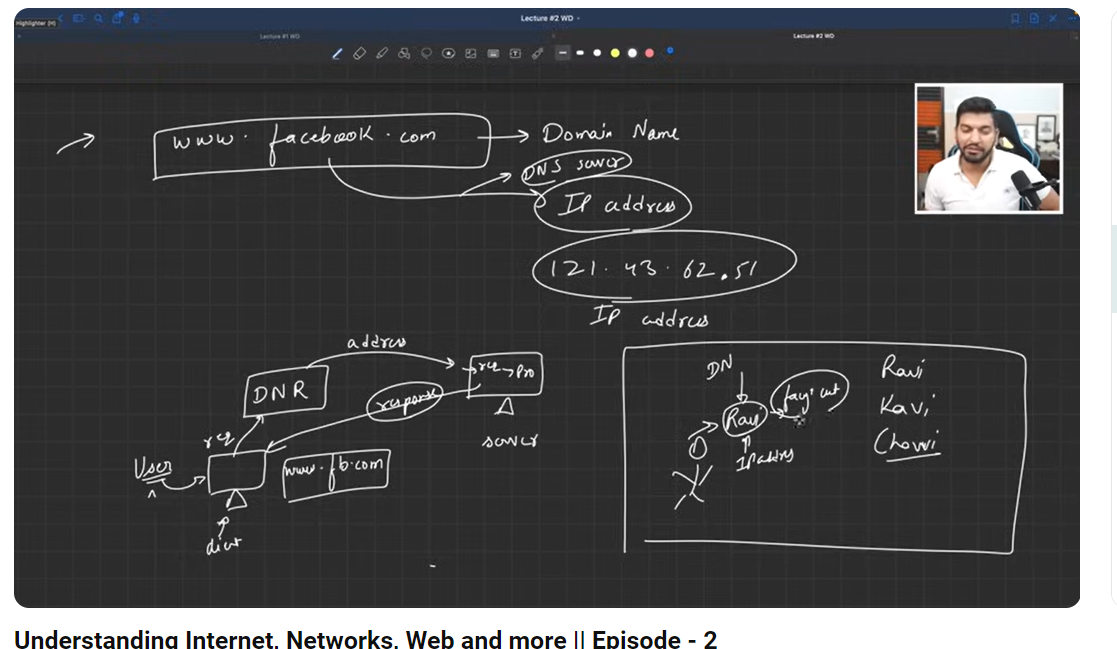 Highlighter (H)
Lecture #2 WD
Lecture #1 WD
Lecture #2 WD
www.facebook.com
Domain Name
DNS server
IP address
121.43.62.51
IP address
address
DNR
req → pro
response
server
req
User
www.fb.com
DN
Ravi
IP address
Ravi
Kavi
Understanding Internet, Networks, Web and more || Episode - 2